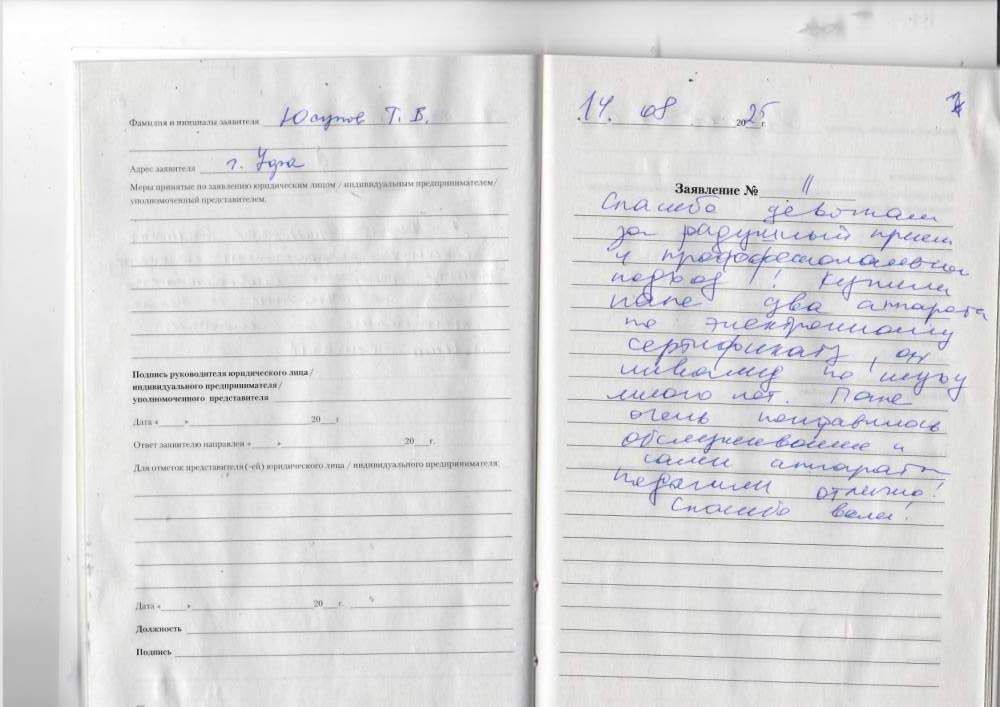 Фамилия и инициалы заявителя Юсупов Т. В.
Адрес заявителя г. Уфа
Меры принятые по заявлению юридическим лицом / индивидуальным предпринимателем/
уполномоченный представителем.
Подпись руководителя юридического лица /
индивидуального предпринимателя/
уполномоченного представителя
Дата «_____»____________________20___г
Ответ заявителю направлен «_____»____________________20___г.
Для отметок представителя (-ей) юридического лица / индивидуального предпринимателя
Дата «_____»____________________20___г.
Должность
Подпись
14. 08 2025 г.
Заявление № 11
Спасибо девочкам
за радушный прием
и профессиональный
подход! Купили
папе два аппарата
по электронному
сертификату, он
инвалид по слуху
много лет. Папе
очень понравилось
обслуживание и
сами аппараты
Подошли отлично!
Спасибо вам!